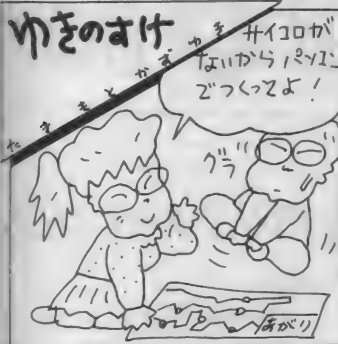 ゆきのすけ
たきもとかずゆき
サイコロが
ないからパソコン
でつくってよ!
グラ
あがり